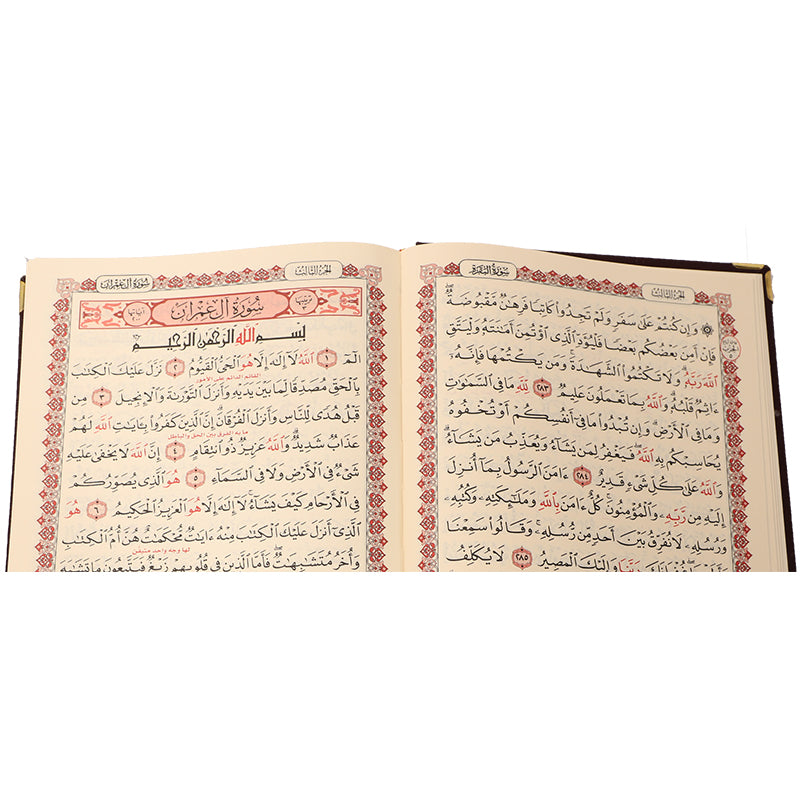 سورة البقرة
الجزء الثالث
۞ وَإِن كُنتُمْ عَلَىٰ سَفَرٍ وَلَمْ تَجِدُوا۟ كَاتِبًا فَرِهَـٰنٌ مَّقْبُوضَةٌ ۖ
فَإِنْ أَمِنَ بَعْضُكُم بَعْضًا فَلْيُؤَدِّ ٱلَّذِى ٱؤْتُمِنَ أَمَـٰنَتَهُۥ وَلْيَتَّقِ
ٱللَّهَ رَبَّهُۥ ۗ وَلَا تَكْتُمُوا۟ ٱلشَّهَـٰدَةَ ۚ وَمَن يَكْتُمْهَا فَإِنَّهُۥٓ
ءَاثِمٌ قَلْبُهُۥ ۗ وَٱللَّهُ بِمَا تَعْمَلُونَ عَلِيمٌ ٢٨٣ لِّلَّهِ مَا فِى ٱلسَّمَـٰوَٰتِ
وَمَا فِى ٱلْأَرْضِ ۗ وَإِن تُبْدُوا۟ مَا فِىٓ أَنفُسِكُمْ أَوْ تُخْفُوهُ
يُحَاسِبْكُم بِهِ ٱللَّهُ ۖ فَيَغْفِرُ لِمَن يَشَآءُ وَيُعَذِّبُ مَن يَشَآءُ ۗ
وَٱللَّهُ عَلَىٰ كُلِّ شَىْءٍ قَدِيرٌ ٢٨٤ ءَامَنَ ٱلرَّسُولُ بِمَآ أُنزِلَ
إِلَيْهِ مِن رَّبِّهِۦ وَٱلْمُؤْمِنُونَ ۚ كُلٌّ ءَامَنَ بِٱللَّهِ وَمَلَـٰٓئِكَتِهِۦ وَكُتُبِهِۦ
وَرُسُلِهِۦ لَا نُفَرِّقُ بَيْنَ أَحَدٍ مِّن رُّسُلِهِۦ ۚ وَقَالُوا۟ سَمِعْنَا
وَأَطَعْنَا ۖ غُفْرَانَكَ رَبَّنَا وَإِلَيْكَ ٱلْمَصِيرُ ٢٨٥ لَا يُكَلِّفُ
الجزء الثالث
سورة آل عمران
سورة آل عمران
بِسْمِ ٱللَّهِ ٱلرَّحْمَـٰنِ ٱلرَّحِيمِ
الٓمٓ ١ ٱللَّهُ لَآ إِلَـٰهَ إِلَّا هُوَ ٱلْحَىُّ ٱلْقَيُّومُ ٢ نَزَّلَ عَلَيْكَ ٱلْكِتَـٰبَ
القائم الدائم على الأمور
بِٱلْحَقِّ مُصَدِّقًا لِّمَا بَيْنَ يَدَيْهِ وَأَنزَلَ ٱلتَّوْرَىٰةَ وَٱلْإِنجِيلَ ٣ مِن
قَبْلُ هُدًى لِّلنَّاسِ وَأَنزَلَ ٱلْفُرْقَانَ ۗ إِنَّ ٱلَّذِينَ كَفَرُوا۟ بِـَٔايَـٰتِ ٱللَّهِ لَهُمْ
ما به الفرق بين الحق والباطل
عَذَابٌ شَدِيدٌ ۗ وَٱللَّهُ عَزِيزٌ ذُو ٱنتِقَامٍ ٤ إِنَّ ٱللَّهَ لَا يَخْفَىٰ عَلَيْهِ
شَىْءٌ فِى ٱلْأَرْضِ وَلَا فِى ٱلسَّمَآءِ ٥ هُوَ ٱلَّذِى يُصَوِّرُكُمْ
فِى ٱلْأَرْحَامِ كَيْفَ يَشَآءُ ۚ لَآ إِلَـٰهَ إِلَّا هُوَ ٱلْعَزِيزُ ٱلْحَكِيمُ ٦ هُوَ
ٱلَّذِىٓ أَنزَلَ عَلَيْكَ ٱلْكِتَـٰبَ مِنْهُ ءَايَـٰتٌ مُّحْكَمَـٰتٌ هُنَّ أُمُّ ٱلْكِتَـٰبِ
لها وجه واحد متيقن
وَأُخَرُ مُتَشَـٰبِهَـٰتٌ ۖ فَأَمَّا ٱلَّذِينَ فِى قُلُوبِهِمْ زَيْغٌ فَيَتَّبِعُونَ مَا تَشَـٰبَهَ